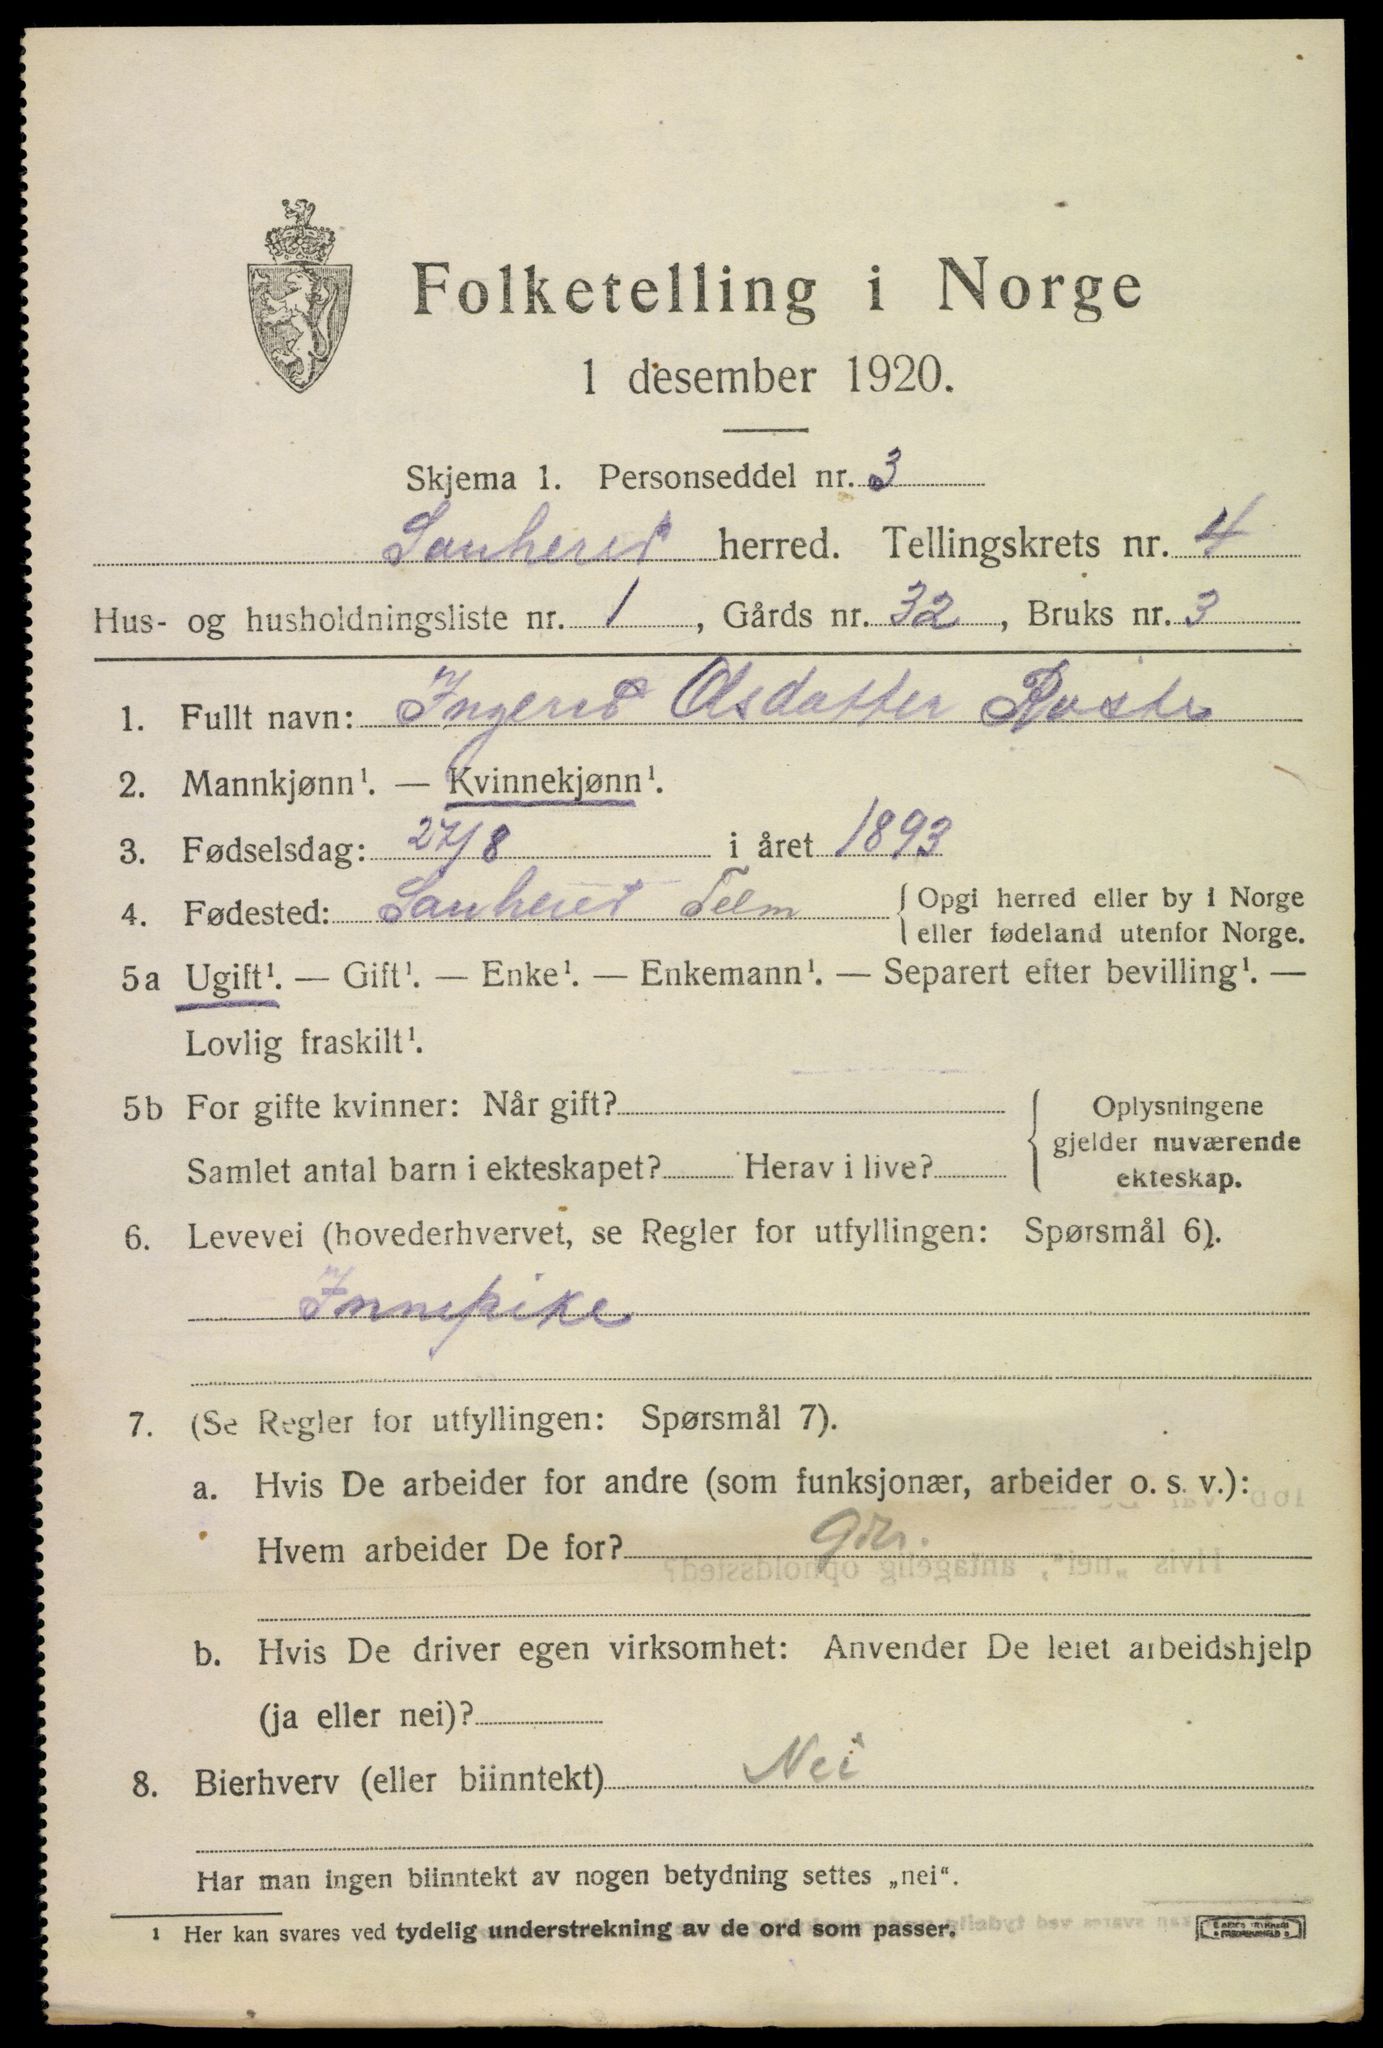 Folketelling i Norge
1 desember 1920.
Skjema 1. Personseddel nr. 3
Sauherad herred. Tellingskrets nr. 4
Hus- og husholdningsliste nr. 1, Gårds nr. 32, Bruks nr. 3
1. Fullt navn: Ingerid Olsdatter
2. Mannkjønn¹. — Kvinnekjønn¹.
3. Fødselsdag: 27/8 i året 1893
4. Fødested: Sauherad Telm { Opgi herred eller by i Norge
eller fødeland utenfor Norge.
5a Ugift¹. — Gift¹. — Enke¹. — Enkemann¹. — Separert efter bevilling¹. —
Lovlig fraskilt¹.
5b For gifte kvinner: Når gift? { Oplysningene
gjelder nuværende
Samlet antal barn i ekteskapet? Herav i live?
ekteskap.
6. Levevei (hovederhvervet, se Regler for utfyllingen: Spørsmål 6).
Innepike
7. (Se Regler for utfyllingen: Spørsmål 7).
a. Hvis De arbeider for andre (som funksjonær, arbeider o. s. v.):
Hvem arbeider De for?
b. Hvis De driver egen virksomhet: Anvender De leiet arbeidshjelp
(ja eller nei)?
8. Bierhverv (eller biinntekt) Nei
Har man ingen biinntekt av nogen betydning settes „nei“.
¹ Her kan svares ved tydelig understrekning av de ord som passer.